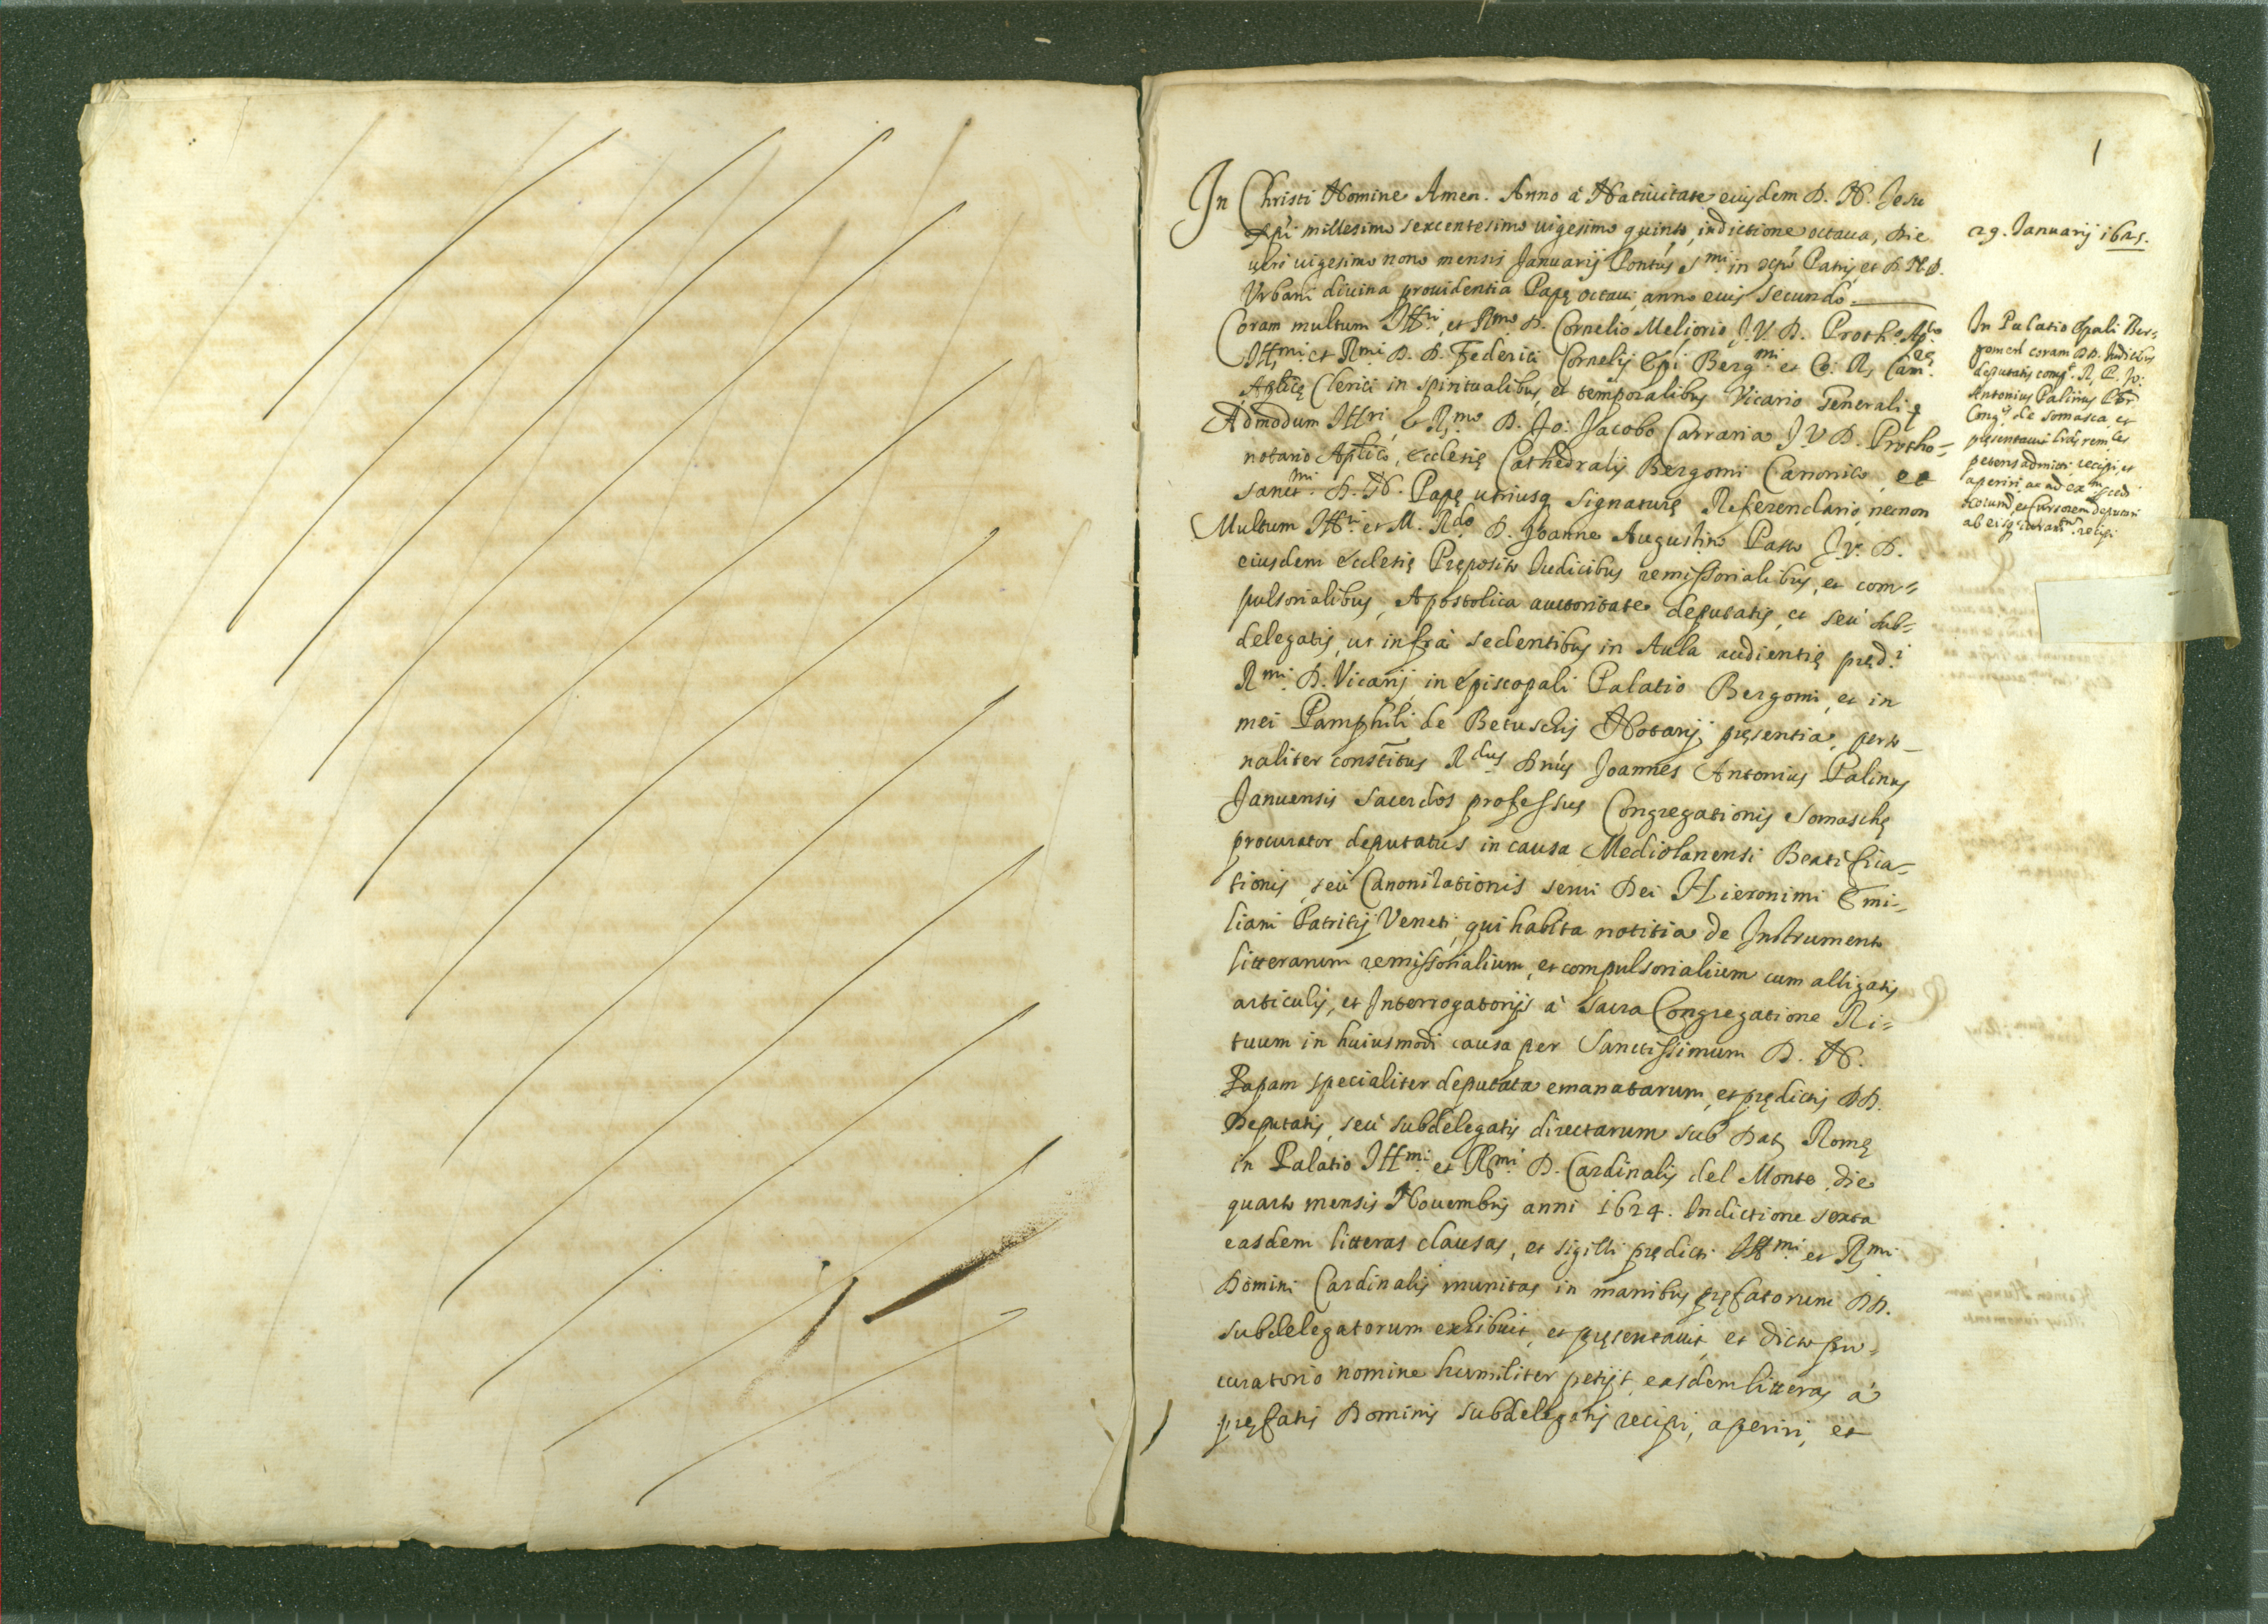 1
In Christi Nomine Amen. Anno à Natiuitate eiusdem D. N. Jesu
Xpi millesimo sexcentesimo uigesimo quinto, indictione octaua, Die
uero uigesimo nono mensis Januarij Pontus Smi in xpo Patris et D. N. D.
Vrbani diuina prouidentia Papę octaui, anno eius secundo.
Coram multum Illri et Rmo D. Cornelio Meliorio J. V. D. Proth. Aplco
Illmi et Rmi D. D. Federici Cornelij Epi Bergmi et Co: R. Camrę
Aplicę Clerici in spiritualibus, et temporalibus Vicario Generali ę
Admodum Illri, & Rmo D. Jo: Jacobo Carraria J V D. Protho-
notario Aplico, ecclesię Cathedralis Bergomi Canonico, et
Sanctmi D. N. Papę utriusq signaturę Referendario, necnon
Multum Illri et M. Rdo D. Joanne Augustino Passo J. V. D.
eiusdem ecclesię Pręposito Judicibus remissorialibus, et com=
pulsorialibus, Apostolica auctoritate deputatis, et seù sub=
delegatis, ut infrà sedentibus in Aula audientię pręd.i
Rmi D. Vicarij in episcopali Palatio Bergomi, et in
mei Pamphili de Betuschis Notarij pręsentia, perso-
naliter constitus Rdus Dnus Joannes Antonius Palinus
Januensis sacerdos professus Congregationis Somaschę
procurator deputatus in causa Mediolanensi Beatifica=
tionis, seù Canonizationis serui Dei Hieronimi Emi=
liani Patritij Veneti, qui habita notitia de Instrumento
litterarum remissorialium, et compulsorialium cum alligatis
articulis, et Interrogatorijs à Sacra Congregatione Ri=
tuum in huiusmodi causa per Sanctissimum D. N.
Papam specialiter deputata emanatarum, et prędictis DD.
Deputatis, seù subdelegatis directarum sub Dat Romę
in Palatio Illmi et Rmi D. Cardinalis del Monte die
quarto mensis Nouembris anni 1624. Indictione sexta
easdem litteras clausas, et sigilli prędicti Illmi et Rmi
Domini Cardinalis munitas in manibus pręfatorum DD.
subdelegatorum exhibuit, et pręsentauit, et dicto pro=
curatorio nomine humiliter petijt, easdem litteras à
pręfatis Dominis subdelegatis recipi, aperiri, et
29. Januarij 1625.
In Palatio Epali Ber=
gomen coram DD. Iudicibus
deputatis comp. R. P. Jo:
Antonius Palinus Pbr
Congis de Somasca, et
pręsentauit lras remles
petens admitti recipi, et
aperiri, ac ad
et Cursorem deputari